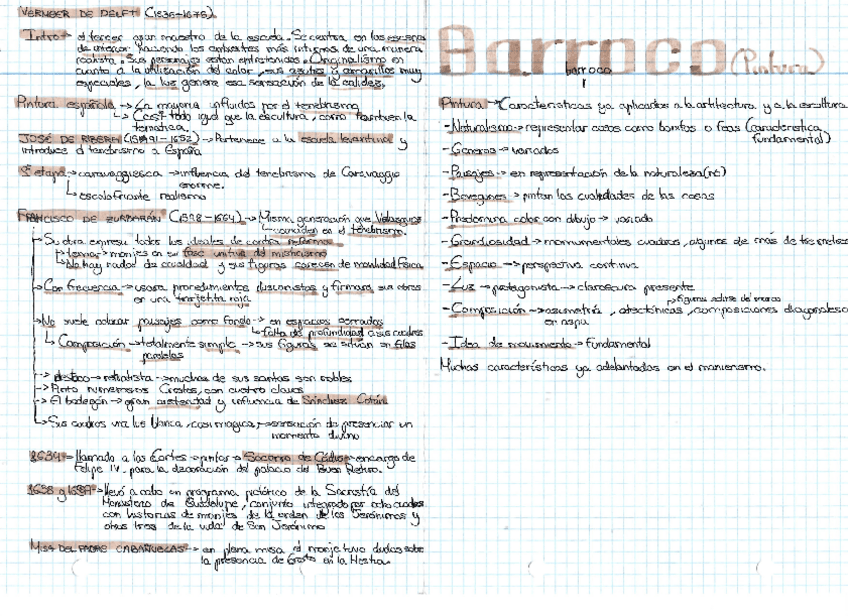 VERMEER DE DELFT (1636-1675).
Intro → el tercer gran maestro de la escuela. Se centra en las escenas
de interior haciendo los ambientes más intimos de una manera
realista. Sus personajes están entretenidos. Originalismo en
cuanto a la utilización del color, sus azules y amarillos muy
especiales, la luz genera esa sensación de la calidez.
Pintura española → La mayoría influidos por el tenebrismo
→ Casi todo igual que la escultura, como
temática.
JOSÉ DE RIBERA → Pertenece a la escuela levantina y
introduce el tenebrismo a España
1ª etapa → caravagguesca → influencia del tenebrismo de Caravaggio
enorme.
→ escalofriante realismo
FRANCISCO DE ZURBARÁN (1598-1664) → Misma generación que Velázquez
coinciden en el tenebrismo.
→ Su obra expresa todos los ideales de contra reforma
→ monjes en su fase unitiva del misticismo
→ No hay nadar de casualidad y sus figuras carecen de movilidad física
→ Con frecuencia → usara procedimientos y firmara sus obras
en una tarjetita roja
→ No suele colocar paisajes como fondo → en espacios cerrados
→ falta de profundidad a sus cuadros
→ Composición → totalmente simple → sus figuras se sitúan en filas
paralelas
→ retratista → muchas de sus santas son nobles
→ Pinto numerosos Cristos, con cuatro clavos
→ El bodegón → gran austeridad y influencia de Sánchez Cotán
→ Sus cuadros una luz blanca, casi magica → sensación de presenciar un
momento divino
1634 → llamado a las Cortes → pintar → Socorro de Cádiz → encargo de
Felipe IV. para la decoración del palacio del Buen Retiro.
1638 y → llevó a cabo un programa pictórico de la Sacristía del
Monasterio de Guadalupe, conjunto integrado por ocho cuadros
con historias de monjes de la orden de los Jerónimos y
otras tres de la vida de San Jerónimo
MISA DEL PADRE CABAÑUELAS → en plena misa, el monje tuvo dudas sobre
la presencia de Cristo en la Hostia.
Barroco (Pintura)
barroco
Pintura → Características ya aplicadas a la arquitectura y a la escultura
- Naturalismo → representar cosas como bonitas o feas (característica
fundamental)
- Generos → variados
- Paisajes → en representación de la naturaleza
- Bodegones → pintan las cualidades de las cosas
- Predomina color con dibujo → variado
- Grandiosidad → monumentales cuadros, algunos de más de tres metros
- Espacio → perspectiva continua
- Luz → protagonista → claroscuro presente
figuras salirse del marco
- Composición → asimetría, atectónicas, composiciones diagonales o
en aspa
- Idea de movimiento → fundamental
Muchas características ya adelantadas en el manierismo.